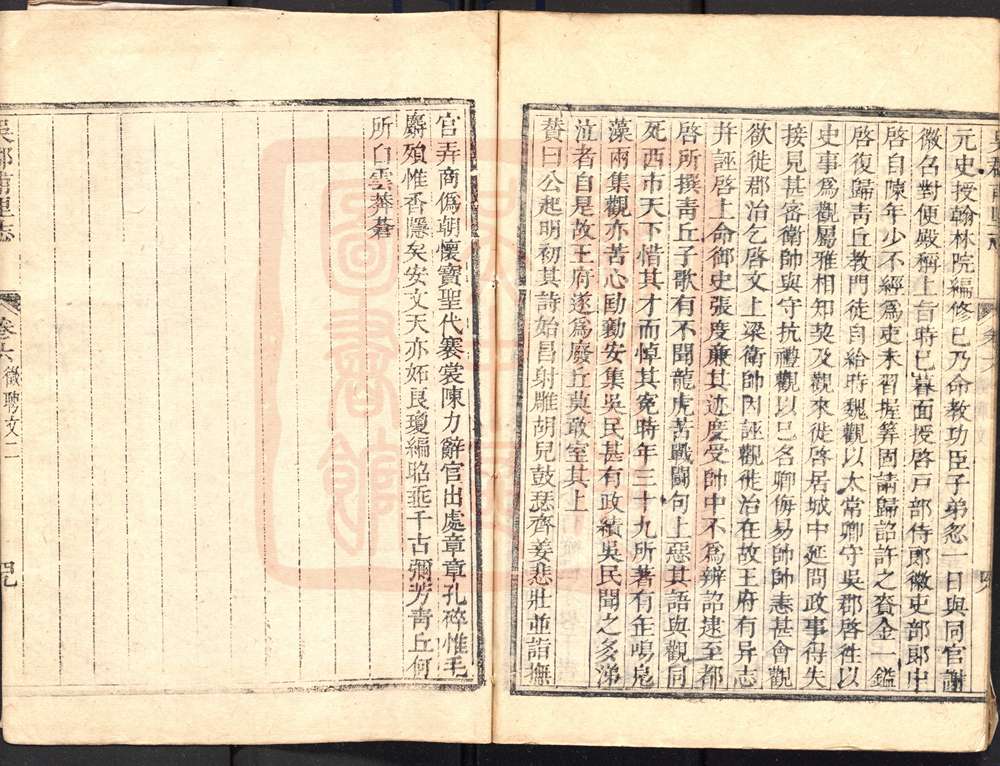 元史授翰林院編修已乃命教功臣子弟忽一日與同官謝
徽召對便殿稱上旨時已暮面授啓戶部侍郎徽吏部郎中
啓自陳年少不經爲吏未習握筭固請歸詔許之賚金一鎰
啓復歸靑丘教門徒自給時魏觀以太常卿守吳郡啓徃以
史事爲觀屬雅相知契及觀來徙啓居城中延問政事得失
接見甚密衛帥與守抗禮觀以已名卿侮易帥帥恚甚會觀
欲徙郡治乞啓文上梁衛帥因誣觀徙治在故王府有异志
幷誣啓上命御史張度亷其迹度受帥中不爲辨詔逮至都
啓所撰靑丘子歌有不聞龍虎苦戰鬬句上惡其語與觀同
死西市天下惜其才而悼其寃時年三十九所著有缶鳴凫
藻兩集觀亦苦心勤安集吳民甚有政績吳民聞之多涕
泣者自是故王府遂爲廢丘莫敢室其上
贊曰公起明初其詩始昌射雕胡兒鼓瑟齊姜悲壯並詣撫
官弄商僞朝懷寶聖代褰裳陳力辭官出處章章孔碎惟毛
麝殞惟香隱矣安文天亦妬良瓊編昭垂千古彌芳靑丘何
所白雲莾蒼
吳郡甫里志
卷六 徵聘文二